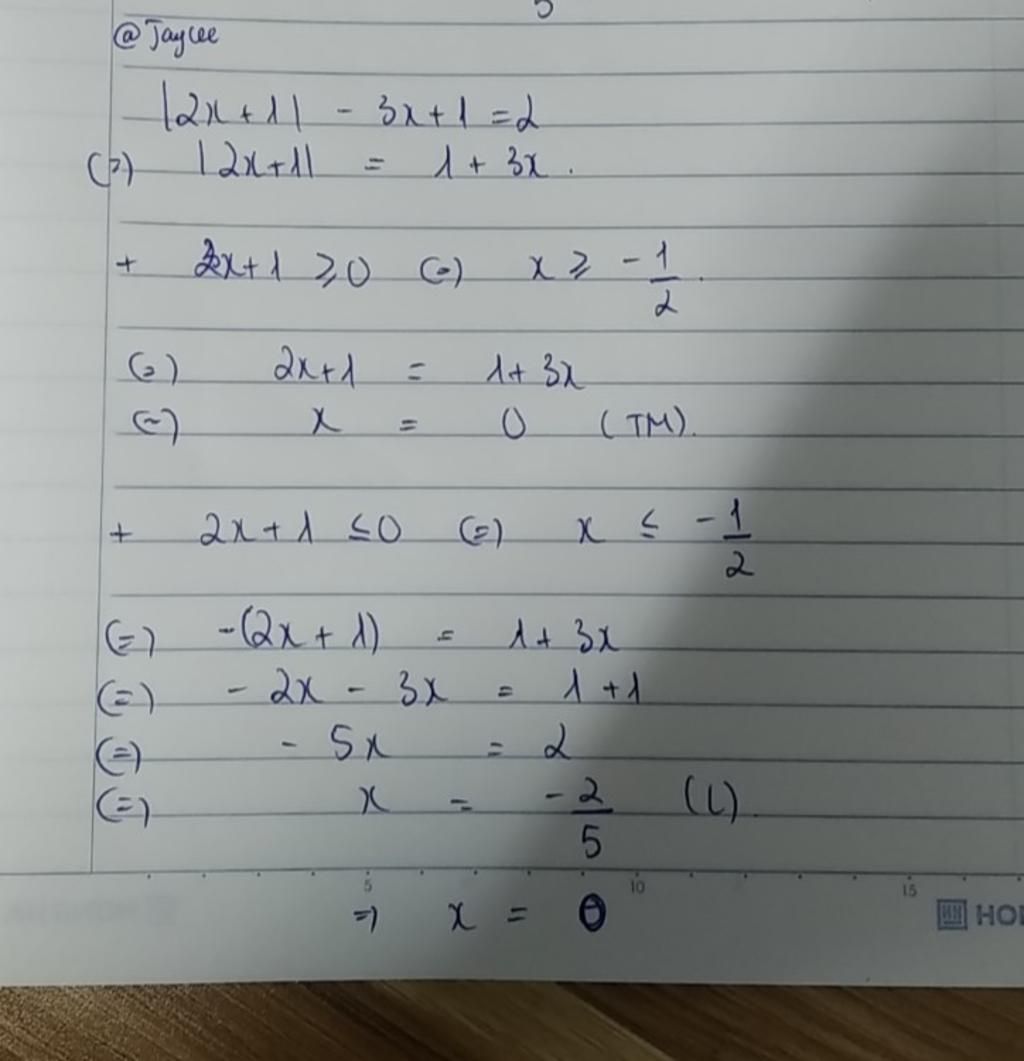 @Jaycee
|2x+1| - 3x+1 = 2
(=) |2x+1| = 1 + 3x.
+ 2x+1 ≥ 0 (=) x ≥ -1/2.
(=) 2x+1 = 1+ 3x
(=) x = 0 (TM).
+ 2x+1 ≤ 0 (=) x ≤ -1/2
(=) -(2x+1) = 1+ 3x
(=) - 2x - 3x = 1 +1
(=) - 5x = 2
(=) x = -2/5 (L).
5 10 15
=) x = 0